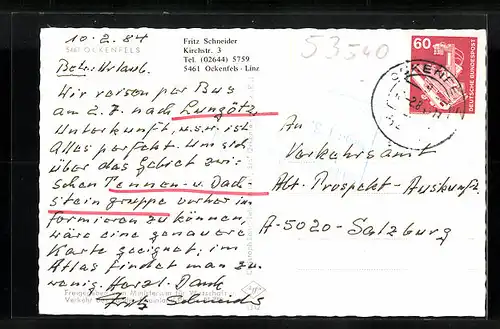 10.2.84
5461 OCKENFELS
Fritz Schneider
Kirchstr. 3
Tel. (02644) 5759
5461 Ockenfels - Linz
53540
60
DEUTSCHE BUNDESPOST
OCKENFELS
Betr. Urlaub.
Wir reisen per Bus
am 2.7. nach Lungötz,
Unterkunft, u.s.w. ist
Alles perfekt. Um sich
über das Gebiet zwi-
schen Tennen- u. Dach-
steingruppe vorher in
formieren zu können,
wäre eine genauere
Karte geeignet; im
Atlas findet man zu
wenig. Herzl. Dank
Fritz Schneider
An
Verkehrsamt
Abt. Prospekt-Auskunft
A-5020-Salzburg
Ministerium für Wirtschaft
Verkehr